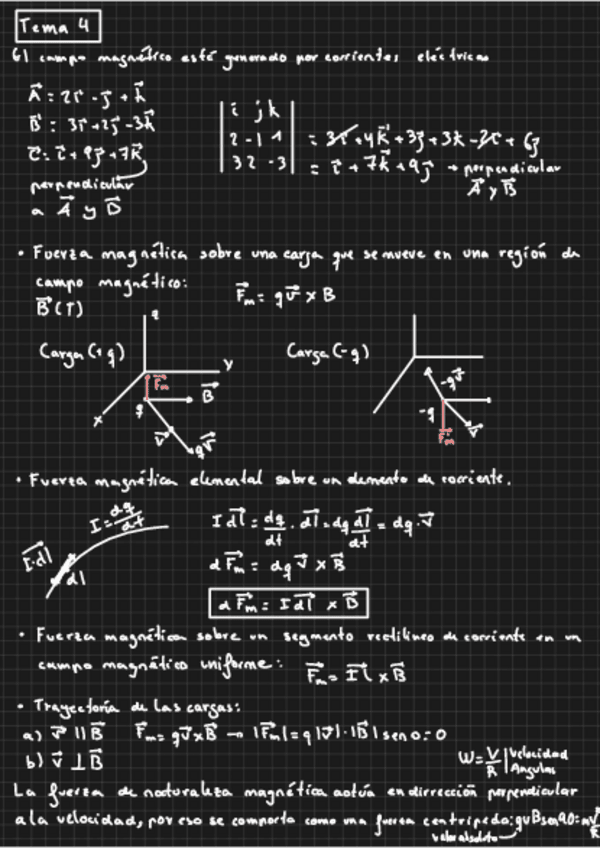 Tema 4
El campo magnético esté generado por corrientes eléctricas
A⃗ = 2i⃗ - j⃗ + k⃗
B⃗ = 3i⃗ + 2j⃗ - 3k⃗
C⃗ = i⃗ + 9j⃗ + 7k⃗
perpendicular
a A⃗ y B⃗
| i j k |
| 2 -1 1 |
| 3 2 -3 |
= 3i⃗ + 4k⃗ + 3j⃗ + 3k - 2i⃗ + 6j
= i⃗ + 7k⃗ + 9j⃗ → perpendicular
A⃗ y B⃗
• Fuerza magnética sobre una carga que se mueve en una región de
campo magnético: F⃗m = qv⃗ × B
B⃗ (T)
Carga (+q)
z
y
x
F⃗m
q
B⃗
v⃗
qv⃗
Carga (-q)
-qv⃗
-q
F⃗m
v⃗
• Fuerza magnética elemental sobre un elemento de corriente.
I = dq/dt
I·dl⃗
dl
I dl⃗ = dq/dt · dl⃗ = dq dl⃗/dt = dq · v⃗
d F⃗m = dq v⃗ × B⃗
d F⃗m = I dl⃗ × B⃗
• Fuerza magnética sobre un segmento rectilíneo de corriente en un
campo magnético uniforme: F⃗m = I l⃗ × B⃗
• Trayectoria de las cargas:
a) v⃗ || B⃗ F⃗m = qv⃗×B⃗ → |F⃗m| = q |v⃗| · |B⃗| sen 0 = 0
b) v⃗ ⊥ B⃗
W = V/R | Velocidad
Angular
La fuerza de naturaleza magnética actúa en dirrección perpendicular
a la velocidad, por eso se comporta como una fuerza centrípeda: qvBsen90 = m v²/R
valor absoluto